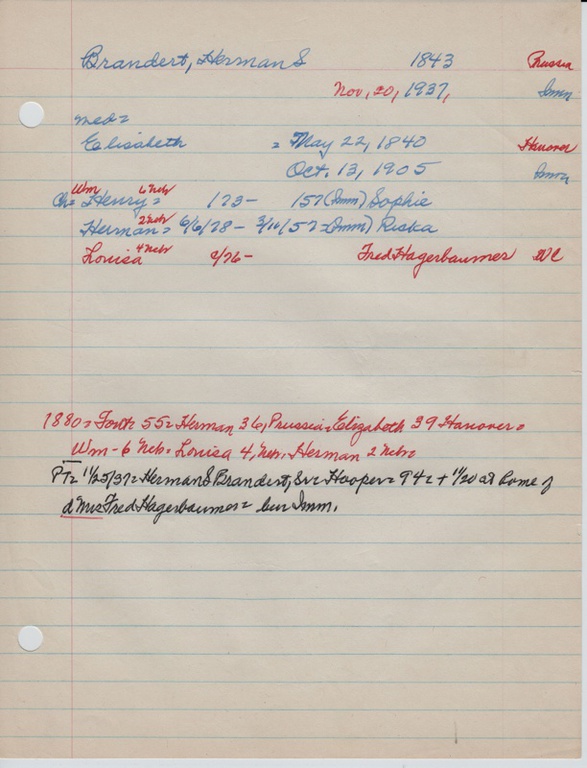 Brandert, Herman S 1843 Prussia
Nov, 20, 1937, Imm
med=
Elisabeth = May 22, 1840 Hanover
Oct. 13, 1905 Imm
Wm 6 Neb
Ch= Henry= 173- 157 (Imm) Sophie
2 Neb
Herman= 6/6/78- 3/11/57=(Imm) Riska
4 Neb
Louisa 9/76- Fred Hagerbaumer
1880= Font= 55= Herman 36, Prussia= Elizabeth 39 Hanover=
Wm- 6 Neb= Louisa 4, Neb. Herman 2 Neb=
PT= 11/25/37= Herman S Brandert, Sr= Hooper= 94= + 11/20 at home of
d Mrs Fred Hagerbaumer= bur Imm.